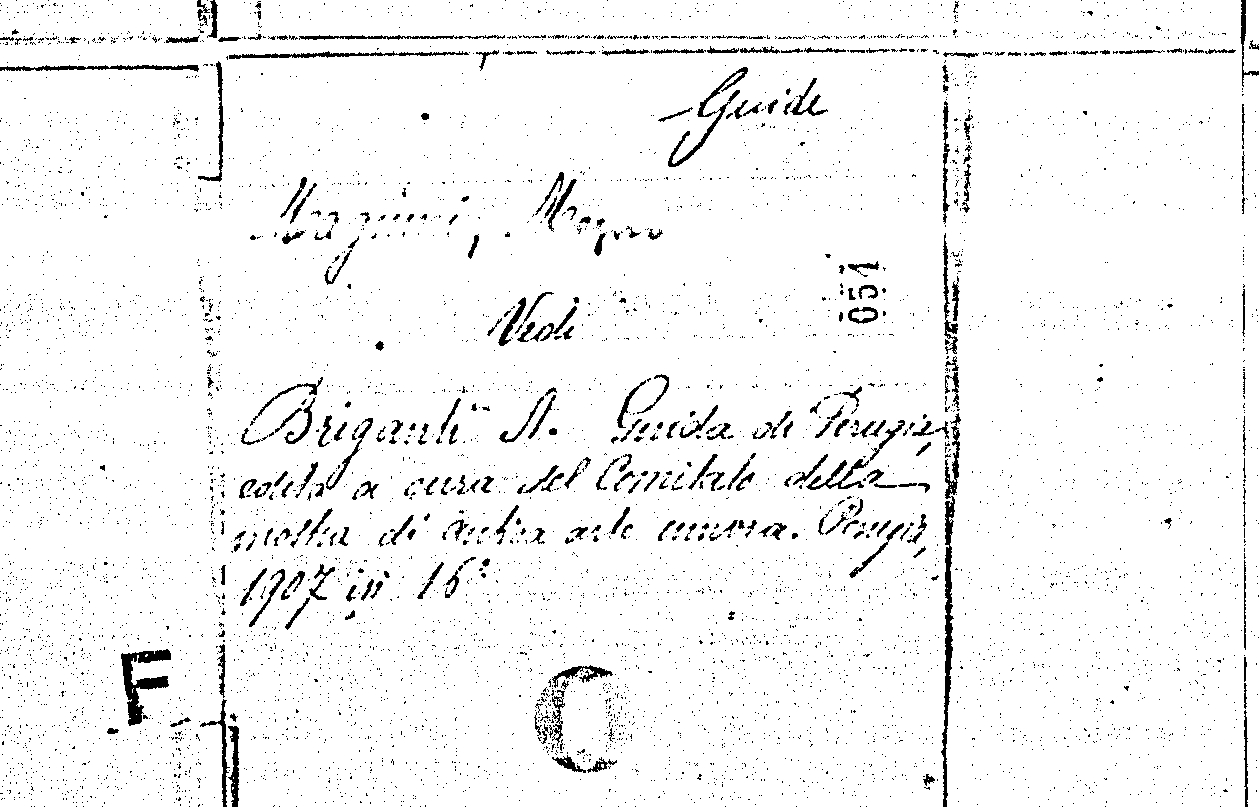 Guide
Magnini,
051
Vedi
Briganti A. Guida di Perugia,
edita a cura del Comitato della
mostra di antica arte umbra. Perugia,
1907 in 16°
F
O